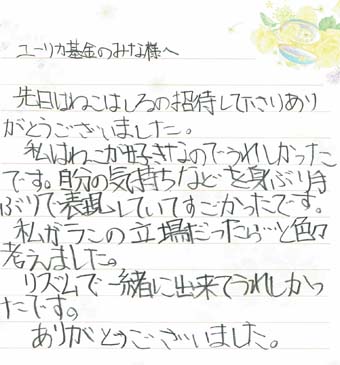 ユーリカ基金のみな様へ
先日はねこはしるの招待して下さりあり
がとうございました。
私はねこが好きなのでうれしかった
です。自分の気持ちなどを身ぶり手
ぶりで表現していてすごかったです。
私がランの立場だったら…と色々
考えました。
リズムで一緒に出来てうれしかっ
たです。
ありがとうございました。